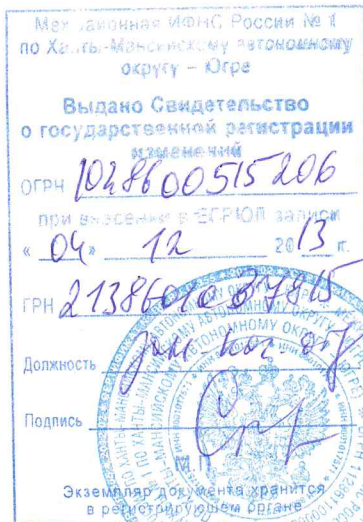 Межрайонная ИФНС России № 1
по Ханты-Мансийскому автономному
округу – Югре
Выдано Свидетельство
о государственной регистрации
изменений
ОГРН 1028600515206
при внесении в ЕГРЮЛ записи
« 04 » 12 2013 г.
ГРН
Должность
Подпись
М.П.
Экземпляр документа хранится
в регистрирующем органе